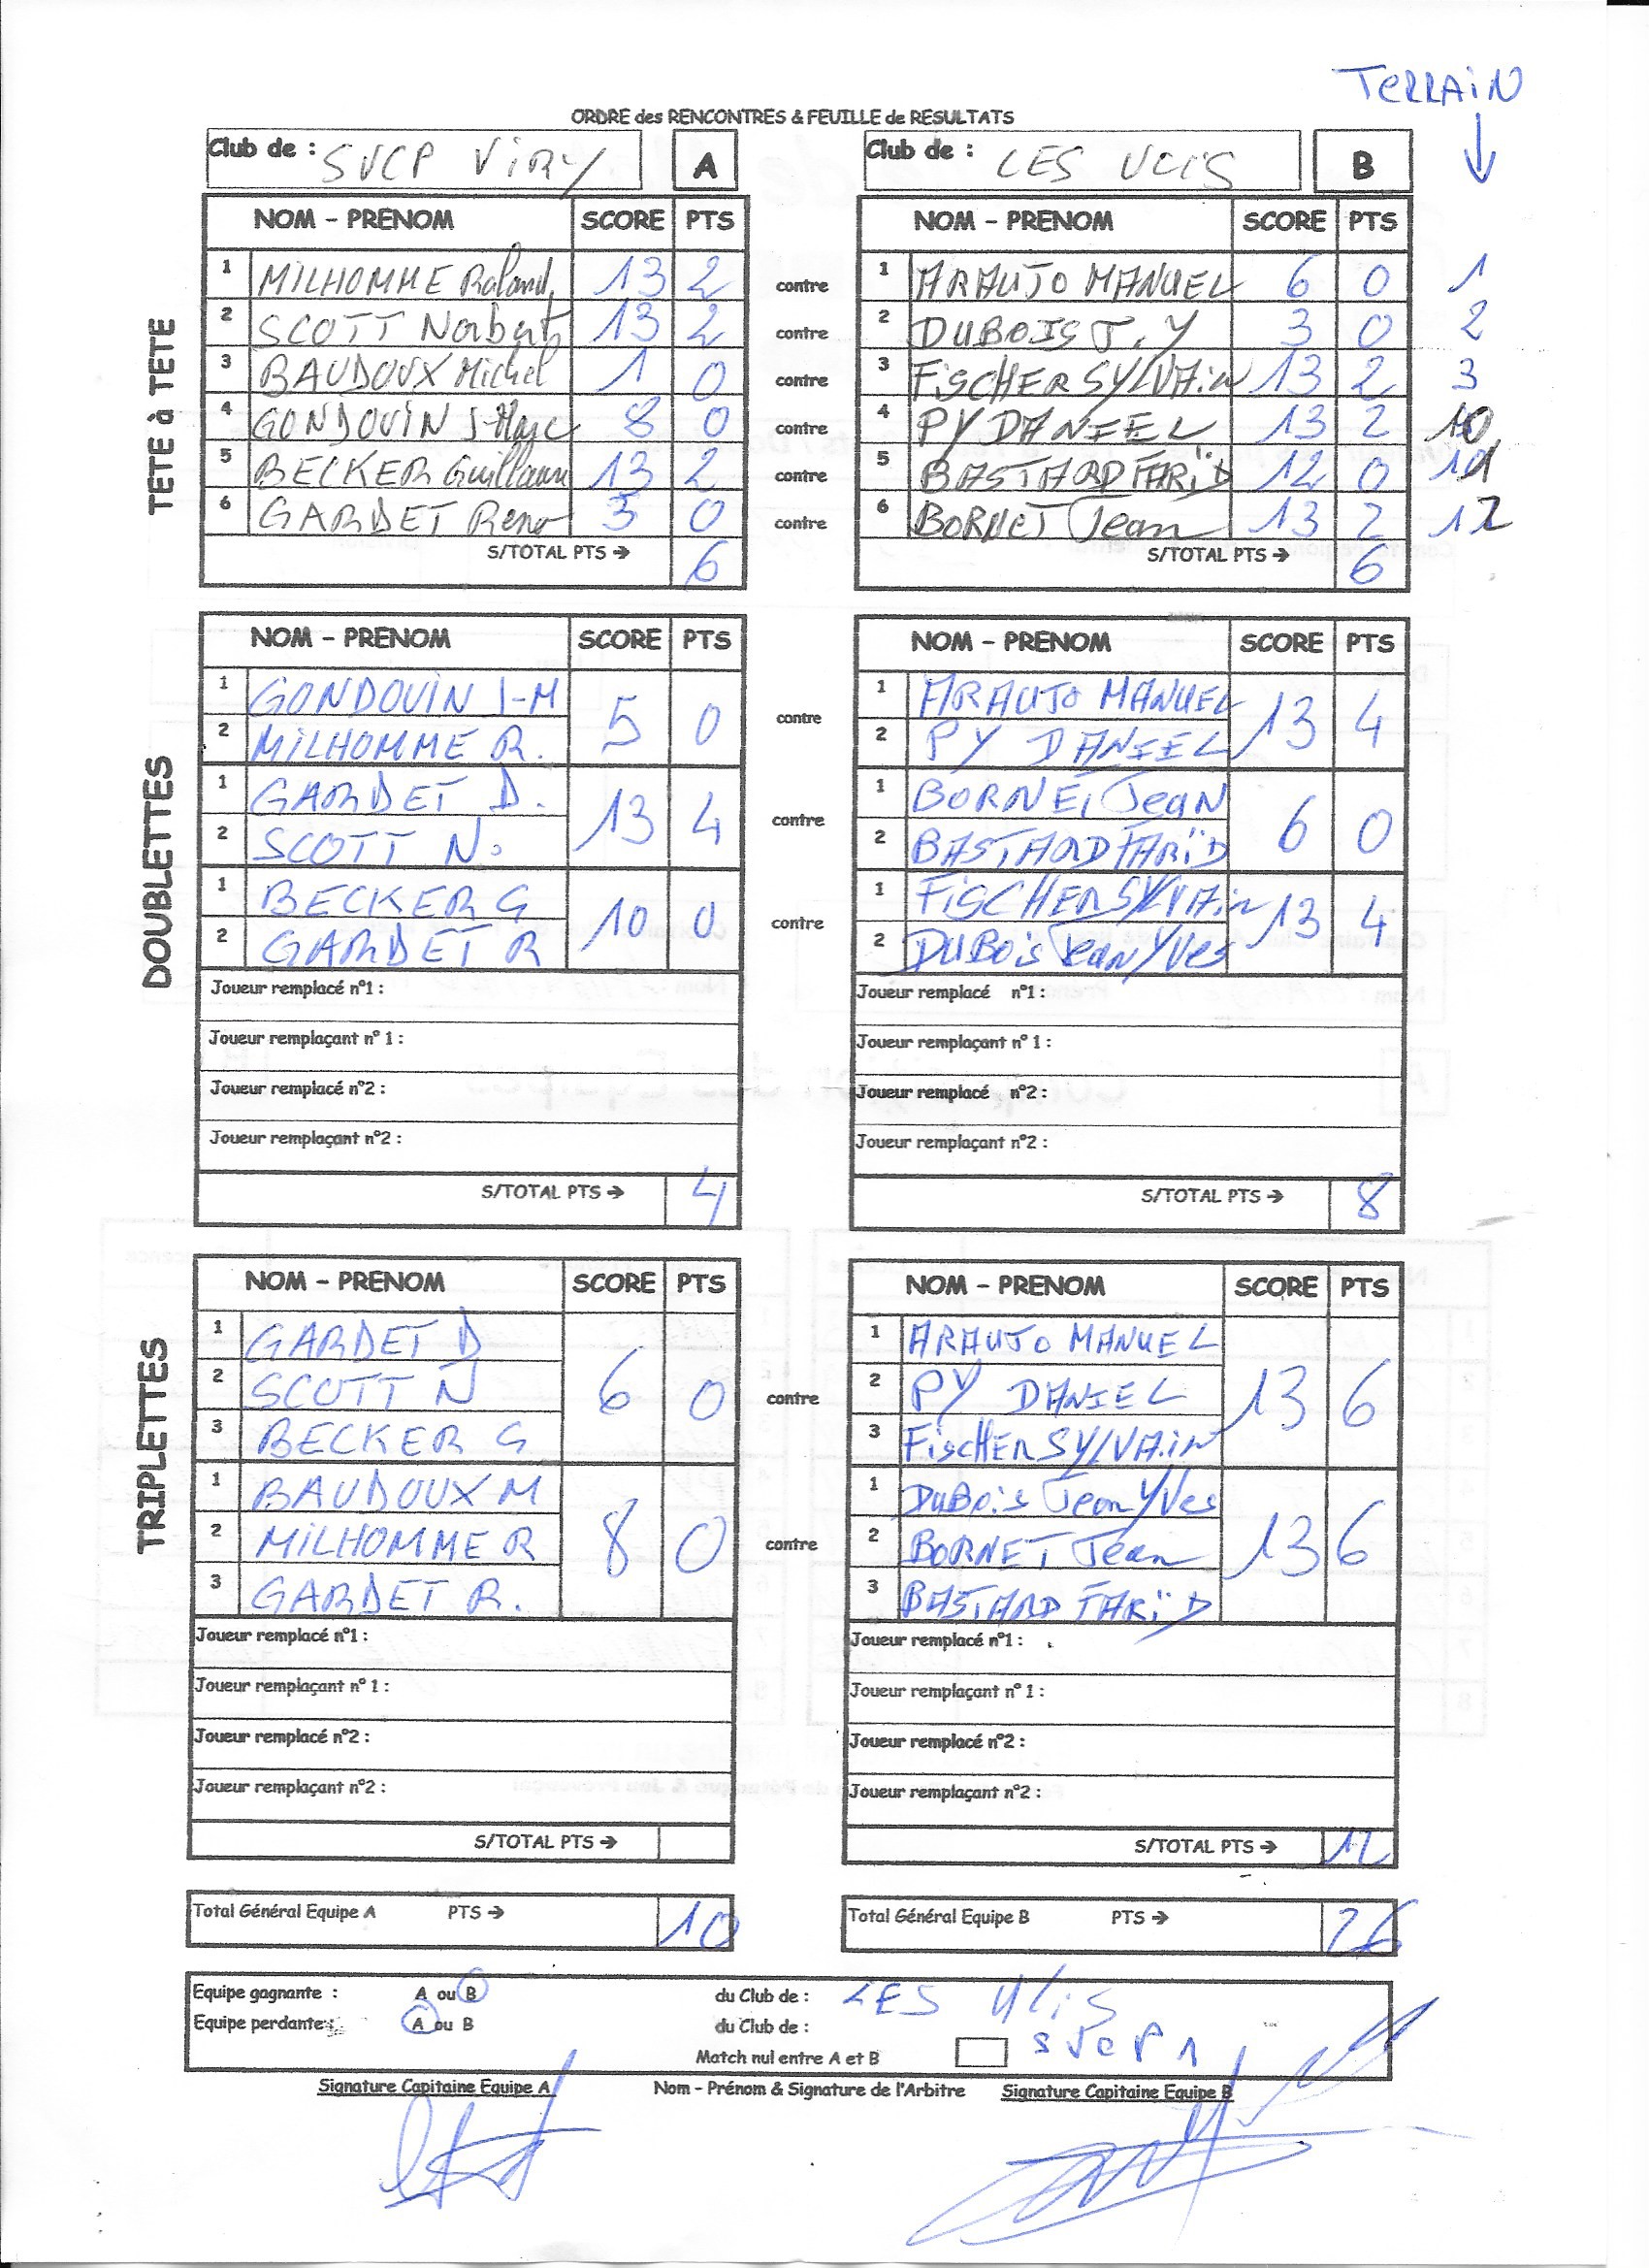 TERRAIN
ORDRE des RENCONTRES & FEUILLE de RESULTATS
Club de : SVCP VIRY A
Club de : LES ULIS B
TETE à TETE
NOM - PRENOM SCORE PTS NOM - PRENOM SCORE PTS
1 MILHOMME Roland 13 2 contre 1 ARAUJO MANUEL 6 0 1
2 SCOTT Norbert 13 2 contre 2 DUBOIS J.Y 3 0 2
3 BAUDOUX Michel 1 0 contre 3 FiSCHER SYLVAiN 13 2 3
4 GONDOUIN J-Marc 8 0 contre 4 PY DANIEL 13 2 10
5 BECKER Guillaume 13 2 contre 5 BASTARD FARïD 12 0 11
6 GARDET Reno 3 0 contre 6 BORNET Jean 13 2 12
S/TOTAL PTS → 6 S/TOTAL PTS → 6
DOUBLETTES
NOM - PRENOM SCORE PTS NOM - PRENOM SCORE PTS
1 GONDOUIN J-M 5 0 contre 1 ARAUJO MANUEL 13 4
2 MILHOMME R. 2 PY DANIEL
1 GARDET D. 13 4 contre 1 BORNET Jean 6 0
2 SCOTT N. 2 BASTARD FARïD
1 BECKER G 10 0 contre 1 FiSCHER SYLVAiN 13 4
2 GARDET R 2 DUBois Jean Yves
Joueur remplacé n°1 : Joueur remplacé n°1 :
Joueur remplaçant n° 1 : Joueur remplaçant n° 1 :
Joueur remplacé n°2 : Joueur remplacé n°2 :
Joueur remplaçant n°2 : Joueur remplaçant n°2 :
S/TOTAL PTS → 4 S/TOTAL PTS → 8
TRIPLETTES
NOM - PRENOM SCORE PTS NOM - PRENOM SCORE PTS
1 GARDET D 1 ARAUJO MANUEL
2 SCOTT N 6 0 contre 2 PY DANIEL 13 6
3 BECKER G 3 FiscHER SYLVAiN
1 BAUDOUX M 1 DuBois Jean Yves
2 MILHOMME R 8 0 contre 2 BORNET Jean 13 6
3 GARDET R. 3 BASTARD FARïD
Joueur remplacé n°1 : Joueur remplacé n°1 :
Joueur remplaçant n° 1 : Joueur remplaçant n° 1 :
Joueur remplacé n°2 : Joueur remplacé n°2 :
Joueur remplaçant n°2 : Joueur remplaçant n°2 :
S/TOTAL PTS → S/TOTAL PTS → 12
Total Général Equipe A PTS → 10 Total Général Equipe B PTS → 26
Equipe gagnante : A ou B du Club de : LES Ulis
Equipe perdante : A ou B du Club de : SVCP 1
Match nul entre A et B
Signature Capitaine Equipe A Nom - Prénom & Signature de l'Arbitre Signature Capitaine Equipe B